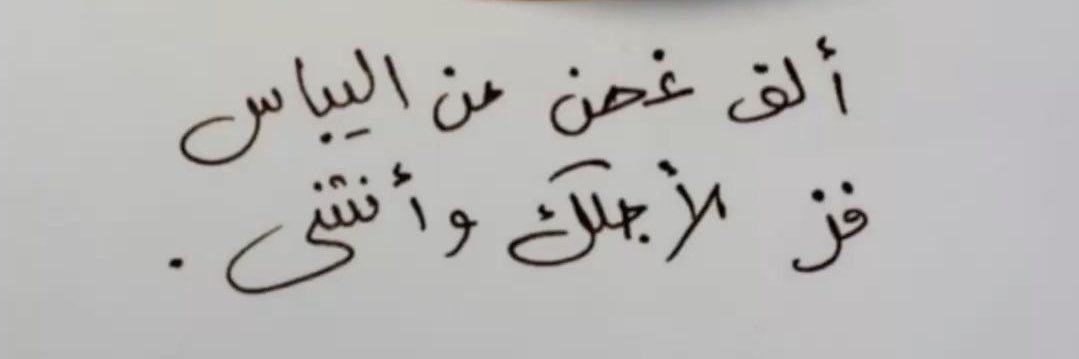 ألف غصن من اليباس
فز لأجلك وأنثنى .